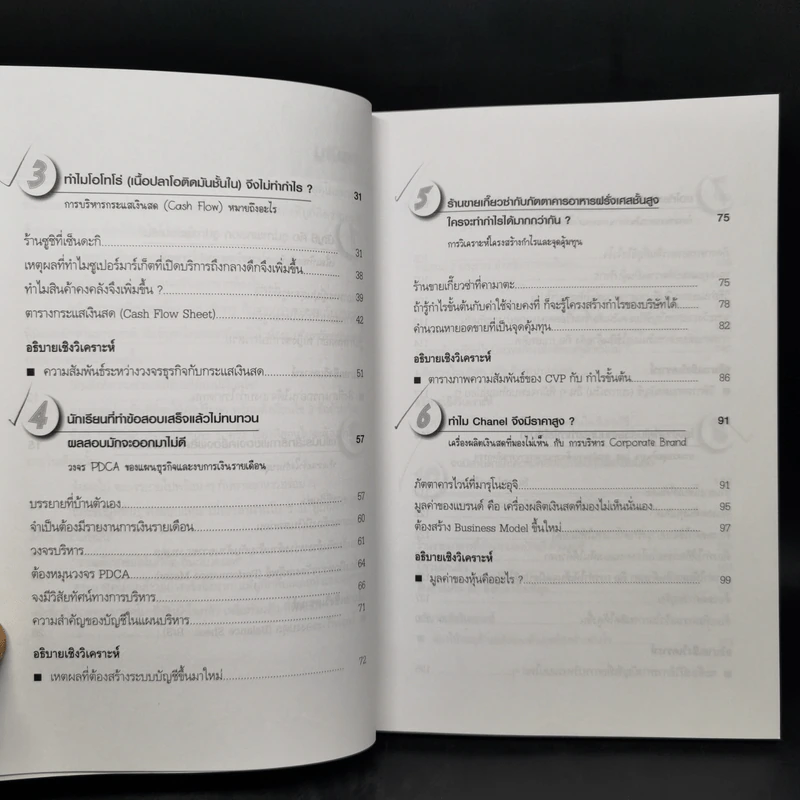 3 ทำไมโอโทโร่ (เนื้อปลาโอติดมันชั้นใน) จึงไม่ทำกำไร ? 31
การบริหารกระแสเงินสด (Cash Flow) หมายถึงอะไร
ร้านซูชิที่เซ็นดะกิ 31
เหตุผลที่ทำไมซูเปอร์มาร์เก็ตที่เปิดบริการถึงกลางดึกจึงเพิ่มขึ้น 38
ทำไมสินค้าคงคลังจึงเพิ่มขึ้น ? 39
ตารางกระแสเงินสด (Cash Flow Sheet) 42
อธิบายเชิงวิเคราะห์
■ ความสัมพันธ์ระหว่างวงจรธุรกิจกับกระแสเงินสด 51
4 นักเรียนที่ทำข้อสอบเสร็จแล้วไม่ทบทวน
ผลสอบมักจะออกมาไม่ดี 57
วงจร PDCA ของแผนธุรกิจและงบการเงินรายเดือน
บรรยายที่บ้านตัวเอง 57
จำเป็นต้องมีรายงานการเงินรายเดือน 60
วงจรบริหาร 61
ต้องหมุนวงจร PDCA 64
จงมีวิสัยทัศน์ทางการบริหาร 66
ความสำคัญของบัญชีในแผนบริหาร 71
อธิบายเชิงวิเคราะห์
■ เหตุผลที่ต้องสร้างระบบบัญชีขึ้นมาใหม่ 72
5 ร้านขายเกี๊ยวซ่ากับภัตตาคารอาหารฝรั่งเศสชั้นสูง
ใครจะทำกำไรได้มากกว่ากัน ? 75
การวิเคราะห์โครงสร้างกำไรและจุดคุ้มทุน
ร้านขายเกี๊ยวซ่าที่คามาตะ 75
ถ้ารู้กำไรขั้นต้นกับค่าใช้จ่ายคงที่ ก็จะรู้โครงสร้างกำไรของบริษัทได้ 78
คำนวณหายอดขายที่เป็นจุดคุ้มทุน 82
อธิบายเชิงวิเคราะห์
■ ตารางภาพความสัมพันธ์ของ CVP กับ กำไรขั้นต้น 86
6 ทำไม Chanel จึงมีราคาสูง ? 91
เครื่องผลิตเงินสดที่มองไม่เห็น กับ การบริหาร Corporate Brand
ภัตตาคารไวน์ที่มารุโนะอุจิ 91
มูลค่าของแบรนด์ คือ เครื่องผลิตเงินสดที่มองไม่เห็นนั่นเอง 95
ต้องสร้าง Business Model ขึ้นใหม่ 97
อธิบายเชิงวิเคราะห์
■ มูลค่าของหุ้นคืออะไร ? 99